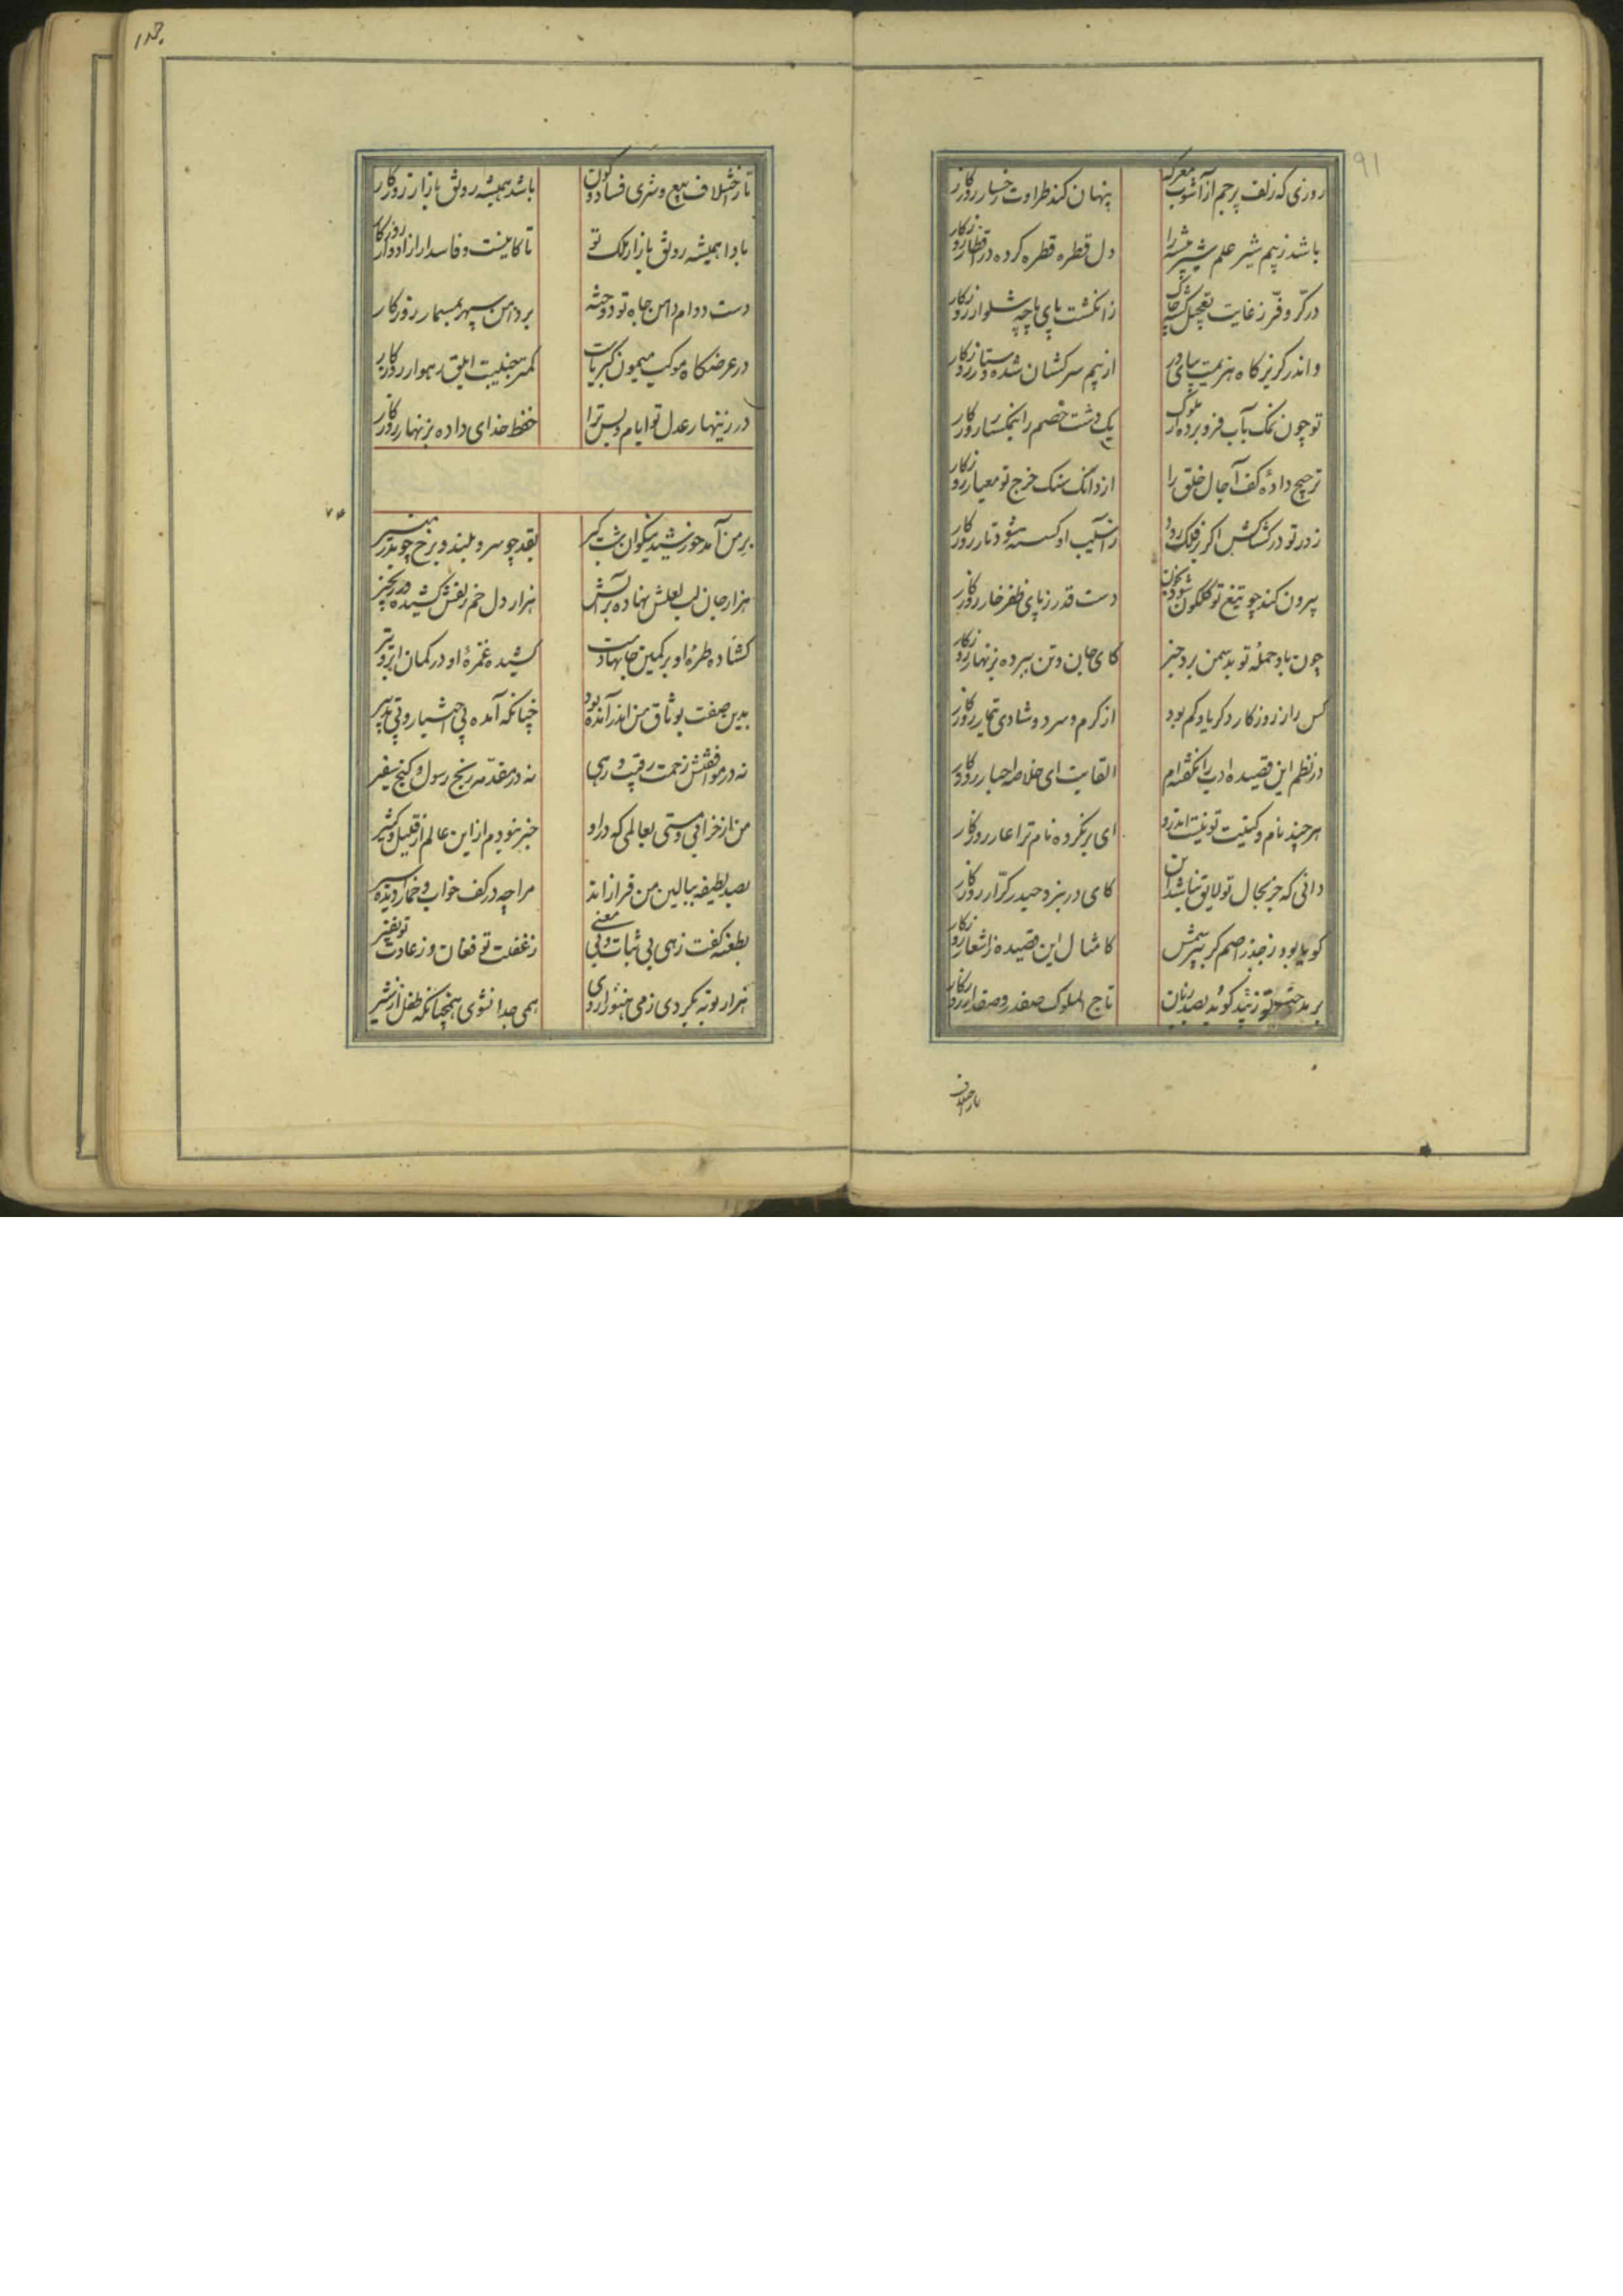 روزی که زلف پرچم از آشوب معرکه پنهان کند طراوت رخسار روزگار
باشد ز بیم شیر علم شیر بیشه را دل قطره قطره کرده در اقطار روزگار
در کرّ و فرّ ز غایت تعجیل گشته چاک ز انگشت پای پاچه شلوار روزگار
و اندر گریزگاه هزیمت بپای در از بیم سرکشان شده دستار روزگار
تو چون نمک بآب فرو برده از ملوک یک دشت خصم را بنمکسار روزگار
ترجیح داده کف آجال خلق را از دانگ سنگ خرج تو معیار روزگار
زدر تو در کشاکش اگر بر فلک رود ز آسیب او گسسته شود تار روزگار
بیرون کند چو تیغ تو گلگون شود بخون دست قدر ز پای ظفر خار روزگار
چون باد حمله تو بدشمن برد خبر کای جان و تن سپرده بزنهار روزگار
کس را ز روزگار دگر یاد کم بود از گرم و سرد و شادی تیمار روزگار
در نظم این قصیده ادب را نگفته‌ام القابت ای خلاصه احبار روزگار
هر چند نام و کنیت تو نیست اندرو ای بر نکرده نام ترا عار روزگار
دانی که جز بحال تو لایق نباشد این کای در نبرد حیدر کرّار روزگار
گوید بود ز جذر اصم گر بپرسمش کامثال این قصیده ز اشعار روزگار
بر بدیهه گوید بصد زبان تاج الملوک صفدر و صفدار روزگار
تا ز اختلاف
تا ز اختلاف بیع و شری فساد و کون باشد همیشه رونق بازار روزگار
بادا همیشه رونق بازار ملک تو تا کاینست و فاسد از ادوار روزگار
دست دوام دامن جاه تو دوخته بر دامن سپهر بمسمار روزگار
در عرضگاه موکب میمون کبریات کمتر جنیبت ابلق رهوار روزگار
در زینهار عدل تو ایام و بس ترا حفظ خدای داده بزنهار روزگار
بر من آمد خورشید نیکوان شبگیر بقد چو سرو بلند و برخ چو بدر منیر
هزار جان لب لعلش نهاده بر آتش هزار دل خم زلفش کشیده در زنجیر
گشاده طره او بر کمین جانها دست کشیده غمزه او در کمان ابرو تیر
بدین صفت بوثاق من اندر آمده بود چنانکه آمده بی اختیار و بی تدبیر
نه در موافقتش زحمت رقیب و رهی نه در مقدّمه رنج رسول و کنج سفیر
من از خرابی و مستی بعالمی که در او خبر نبودم از این عالم از قلیل و کثیر
بصد لطیفه ببالین من فراز آمد مرا چه در کف خواب و خمار دید اسیر
بطعنه گفت زهی بی ثبات و بی معنی ز غفلت تو فغان و ز عادت تو نفیر
هزار توبه بکردی ز می هنوز از وی همی جدا نشوی همچنانکه طفل از شیر